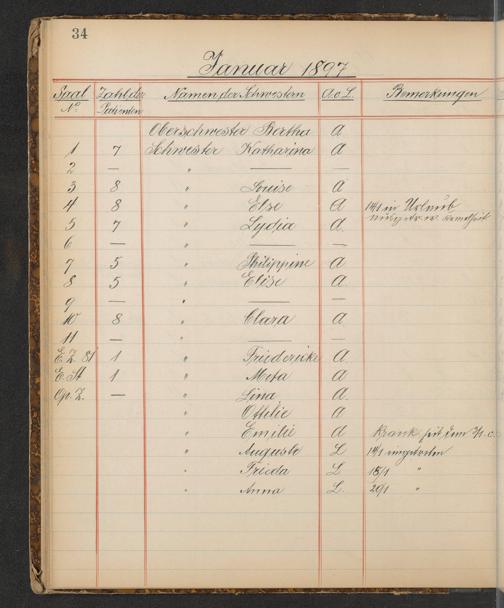 34
Januar 1897
Saal No. Zahl der Patienten Namen der Schwestern A. o L. Bemerkungen
Oberschwester Bertha A
1 7 Schwester Katharina A
2 — " — —
3 8 " Louise A
4 8 " Else A in Urlaub
5 7 " Lydia A.
6 — " — —
7 5 " Philippine A
8 5 " Elise A
9 — " — —
10 8 " Clara A
11 — " — —
E. Z. 1 " Friedericke A
E. 1 " Meta A
Op. Z. — " Lina A.
" Ottilie A
" Emilie A Krank seit dem
" Auguste L eingetreten
" Frieda L 18/1 "
" Anna L. 20/1 "